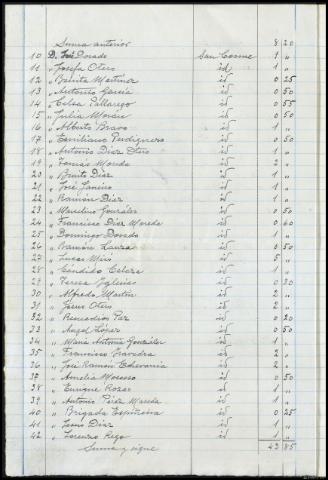 Suma anterior 8 20
10 D. José Dorado San Cosme 1 "
11 " Josefa Otero id 1 "
12 " Benita Martinez id 0 25
13 " Antonio García id 0 50
14 " Celsa Pallarego id 0 55
15 " Julia id 0 50
16 " Alberto Bravo id 1 "
17 " Emiliano Perdiguero id 0 50
18 " Antonio Diaz id 1 "
19 " Tomás Moreda id 2 "
20 " Benito Diaz id 1 "
21 " José Janeiro id 1 "
22 " Ramón Diaz id 1 "
23 " Marcelino González id 0 50
24 " Francisco Diaz Moreda id 0 60
25 " Domingo Dorado id 0 50
26 " Ramón Lauza id 0 50
27 " Lucas id 5 "
28 " Cándido id 1 "
29 " Teresa Yglesias id 0 30
30 " Alfredo Martin id 2 "
31 " Jesus Otero id 2 "
32 " Remedios Paz id 0 20
33 " Angel López id 0 50
34 " Maria Antonia González id 1 "
35 " Francisco id 2 "
36 " José Ramón Echevarria id 2 "
37 " Amelia id 0 50
38 " Enrique id 1 "
39 " Antonio Pérez Moreda id 1 "
40 " Brigada Espiñeira id 0 25
41 " Diaz id 1 "
42 " Lorenzo Rego id 1 "
Suma y sigue 43 85